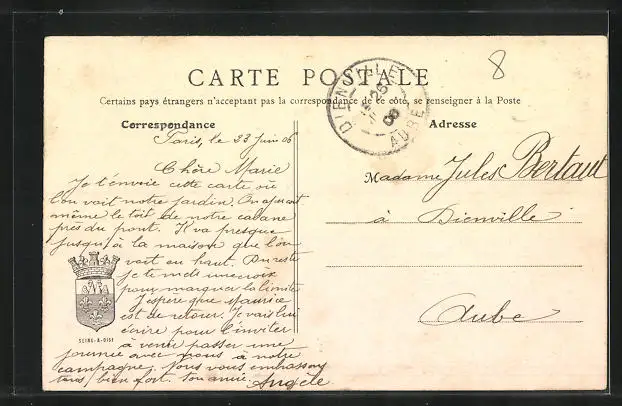 8
CARTE POSTALE
Certains pays étrangers n'acceptent pas la correspondance de ce côté, se renseigner à la Poste
DIENVILLE
25
06
AUBE
Correspondance
Paris, le 23 Juin 06
Chère Marie
Je t'envoie cette carte où
l'on voit notre jardin. On aperçoit
même le toit de notre cabane
près du pont. Il va presque
jusqu'à la maison que l'on
voit en haut. Du reste
je te mets une croix
pour marquer la limite
J'espère que Maurice
est de retour. Je vais lui
écrire pour l'inviter
à venir passer une
journée avec nous à notre
campagne. Nous vous embrassons
tous bien fort. ton amie. Angèle
SEINE-&-OISE
Adresse
Madame Jules Bertaut
à Dienville
Aube